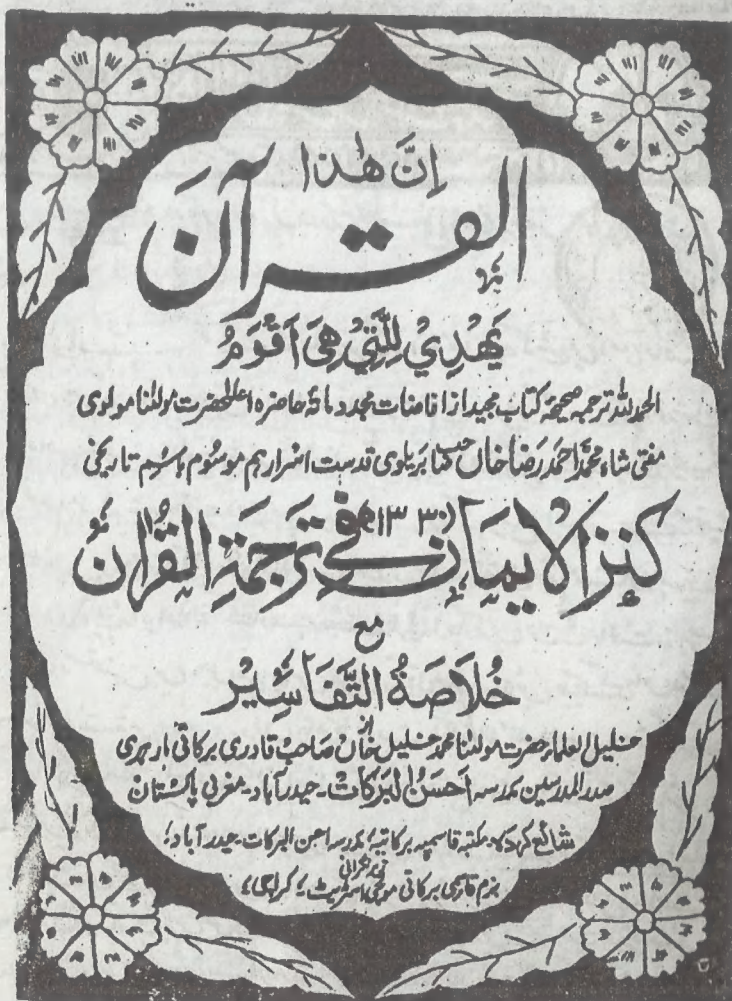 اِنَّ هٰذا
القرآنَ
یَهْدِیْ لِلَّتِیْ هِیَ اَقْوَمُ
الحمدللہ ترجمہ صحیحہ کتاب مجید از افاضات مجدد مائۃ حاضرہ اعلٰحضرت مولٰنا مولوی
مفتی شاہ محمد احمد رضا خاں صاحب بریلوی قدست اسرارہم موسُوم باسم تاریخی
کنز الایمان فی ترجمۃ القرآن ۱۳۳۰ھ
مع
خُلَاصَۃُ التَّفَاسِیْر
از
خلیل العلماء حضرت مولٰنا محمد خلیل خاں صاحب قادری برکاتی مارہری
صدر المدرسین مدرسہ اَحسَنُ البَرکَات۔ حیدرآباد۔ مغربی پاکستان
شائع کردہ مکتبہ قاسمیہ برکاتیہ؛ مدرسہ احسن البرکات۔ حیدرآباد؛
زیر نگرانی
بزم قاسمی برکاتی موسٰی اسٹریٹ؛ کراچی؛